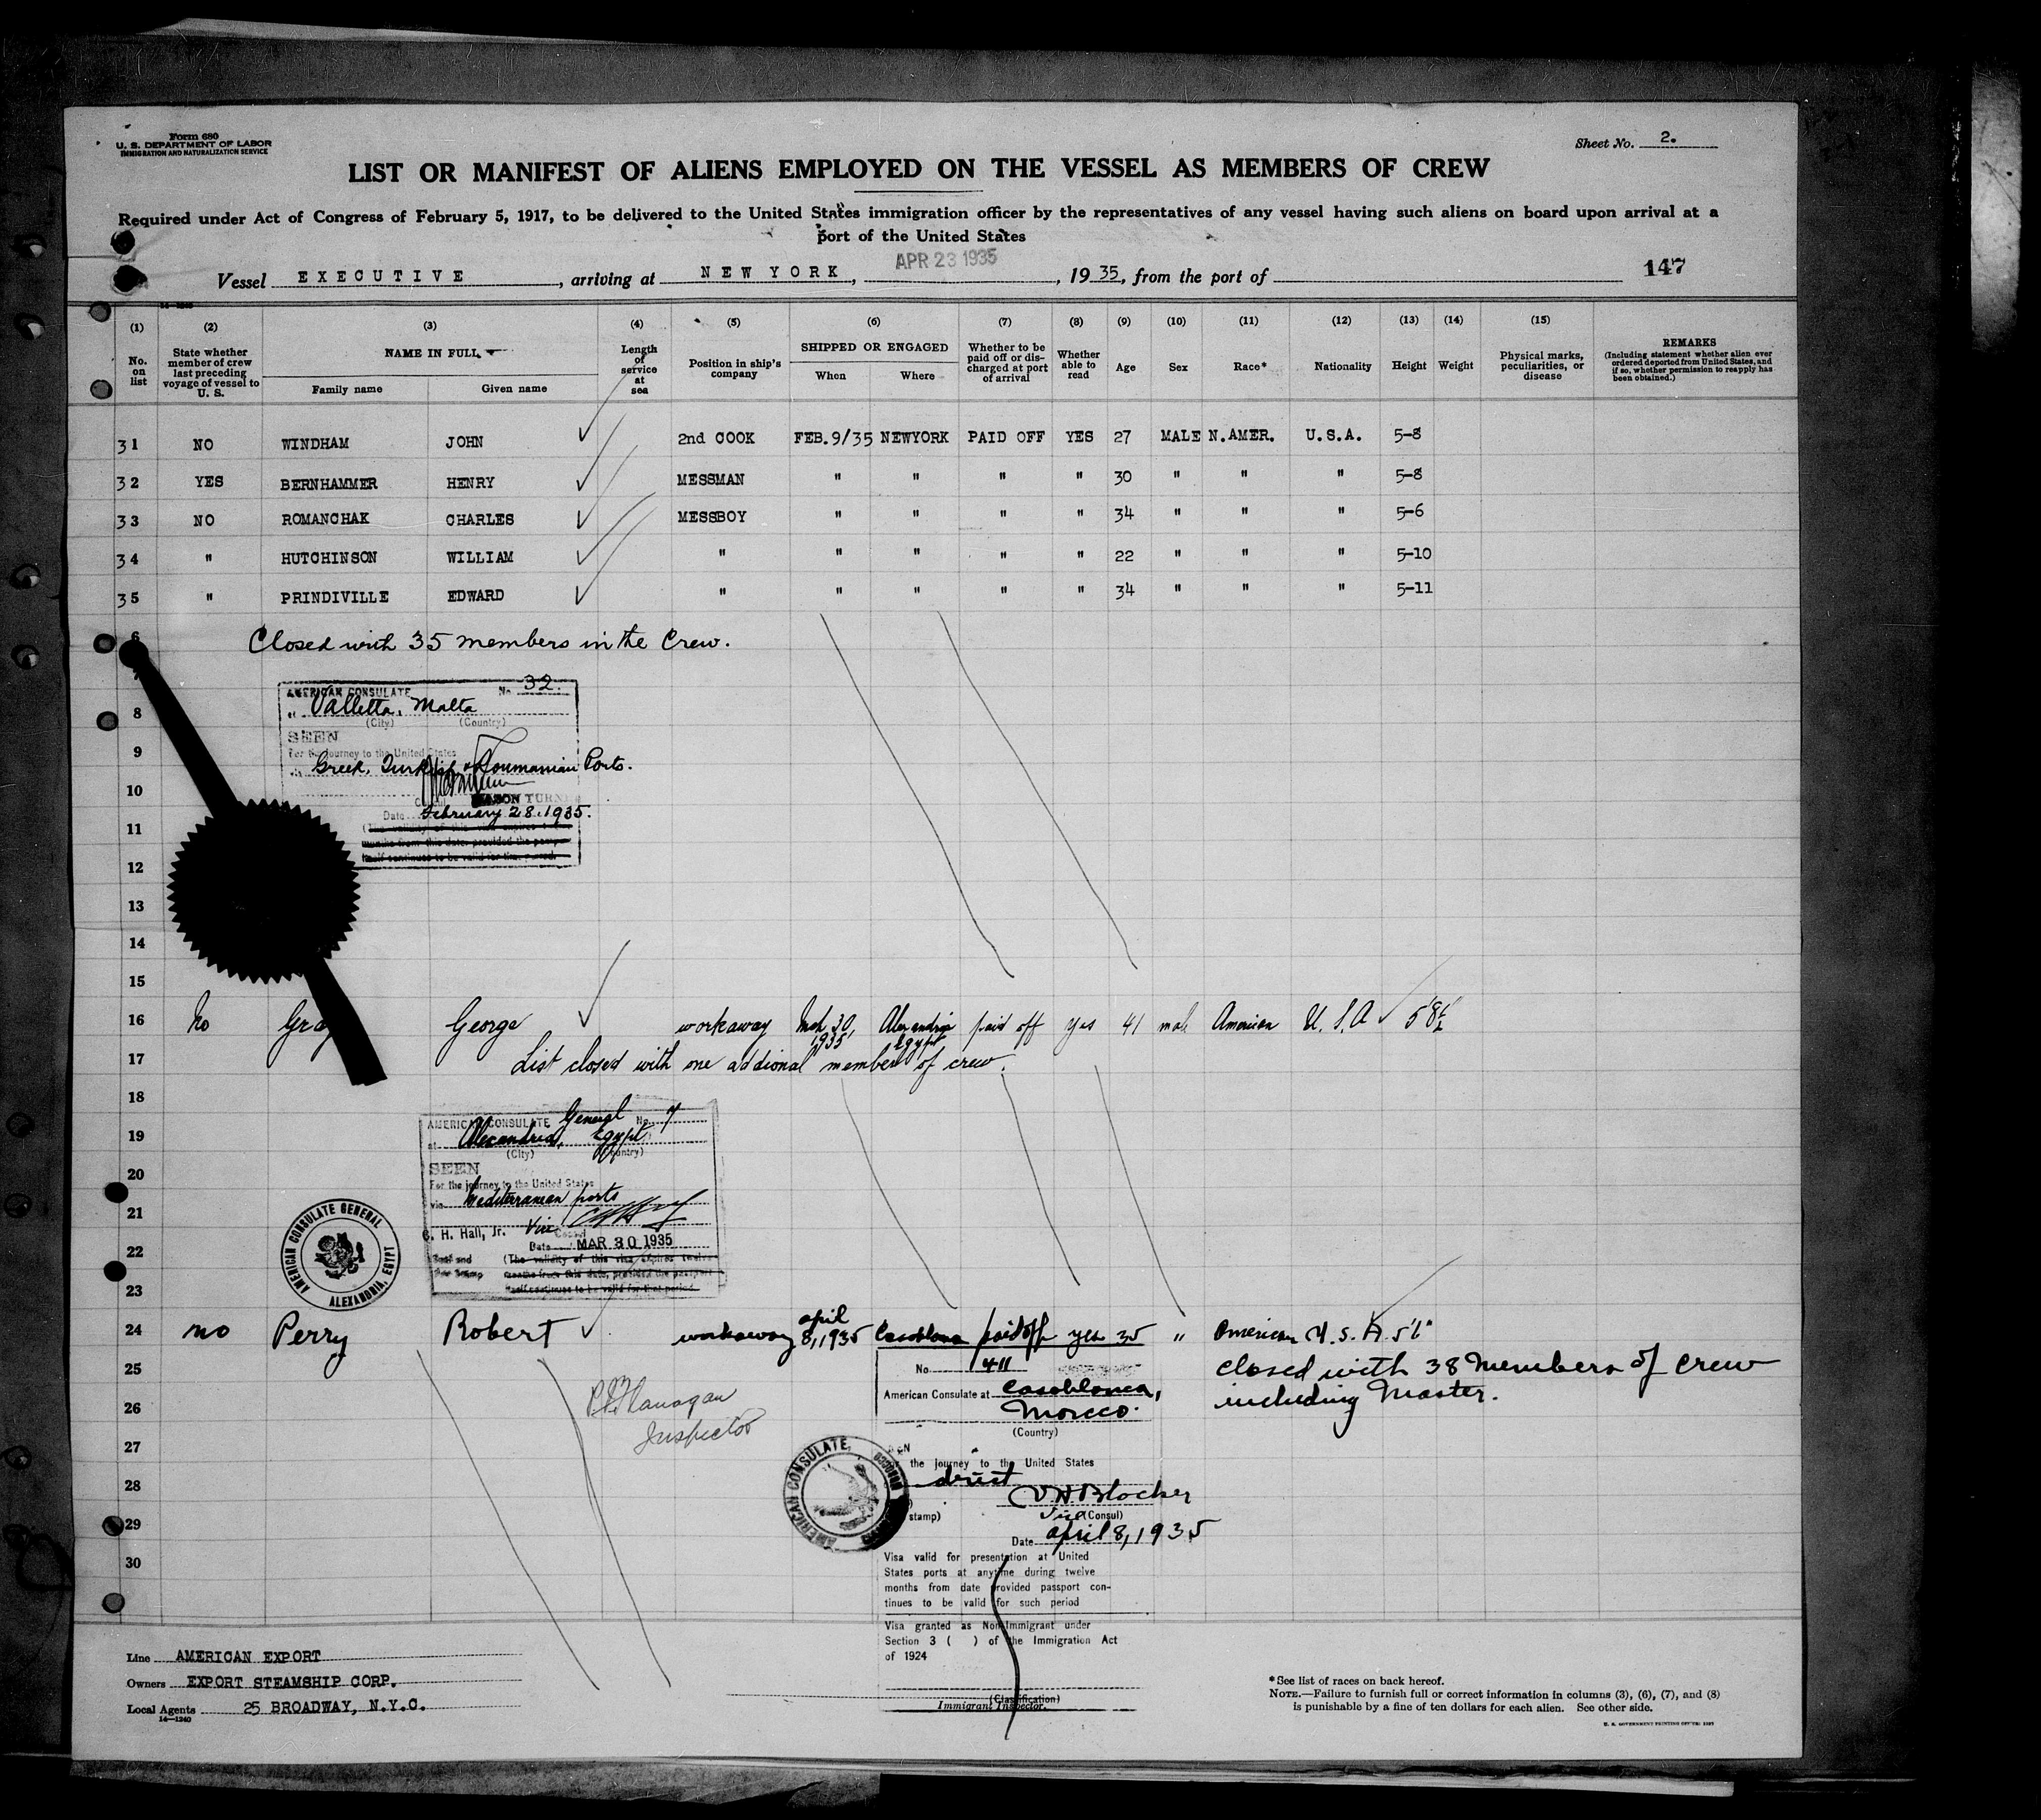 Form 680
U. S. DEPARTMENT OF LABOR
IMMIGRATION AND NATURALIZATION SERVICE
Sheet No. 2.
LIST OR MANIFEST OF ALIENS EMPLOYED ON THE VESSEL AS MEMBERS OF CREW
Required under Act of Congress of February 5, 1917, to be delivered to the United States immigration officer by the representatives of any vessel having such aliens on board upon arrival at a
port of the United States
APR 23 1935
Vessel EXECUTIVE, arriving at NEW YORK, , 1935, from the port of 147
(1) (2) (3) (4) (5) (6) (7) (8) (9) (10) (11) (12) (13) (14) (15)
No. on list
State whether member of crew last preceding voyage of vessel to U. S.
NAME IN FULL
Family name Given name
Length of service at sea
Position in ship's company
SHIPPED OR ENGAGED
When Where
Whether to be paid off or discharged at port of arrival
Whether able to read
Age
Sex
Race*
Nationality
Height
Weight
Physical marks, peculiarities, or disease
REMARKS
(Including statement whether alien ever ordered deported from United States, and if so, whether permission to reapply has been obtained.)
31 NO WINDHAM JOHN 2nd COOK FEB.9/35 NEWYORK PAID OFF YES 27 MALE N.AMER. U.S.A. 5-8
32 YES BERNHAMMER HENRY MESSMAN " " " " 30 " " " 5-8
33 NO ROMANCHAK CHARLES MESSBOY " " " " 34 " " " 5-6
34 " HUTCHINSON WILLIAM " " " " " 22 " " " 5-10
35 " PRINDIVILLE EDWARD " " " " " 34 " " " 5-11
6 Closed with 35 members in the Crew.
7
AMERICAN CONSULATE No. 32.
8 Valletta, Malta
(City) (Country)
SEEN
9 For the journey to the United States
Greek, Turkish & Roumanian Ports.
10
MASON TURN
Date February 28, 1935.
11
12
13
14
15
16 No George workaway Mch 30, 1935 Alexandria Egypt paid off yes 41 male American U.S.A 5'8½"
17 List closed with one addional member of crew.
18
AMERICAN CONSULATE General No. 7
19 at Alexandria, Egypt
(City) (Country)
20 SEEN
For the journey to the United States
via Mediterranean ports
21
22 C. H. Hall, Jr. Vice Consul
Date MAR 30 1935
(The validity of this visa expires twelve
months from this date, provided the passport
23 itself continues to be valid for that period.
AMERICAN CONSULATE GENERAL
ALEXANDRIA, EGYPT
24 no Perry Robert workaway april 8, 1935 Casablanca paid off yes 35 " American U.S.A. 5'6"
25 closed with 38 Members of crew
26 including Master.
P. Flanagan
Inspector
No. 411
American Consulate at Casablanca,
Morcco.
(Country)
27
the journey to the United States
28 drict
VH Blocker
29 stamp) Vice (Consul)
Date april 8, 1935
AMERICAN CONSULATE,
30
Visa valid for presentation at United
States ports at anytime during twelve
months from date provided passport con-
tinues to be valid for such period
Visa granted as Non-Immigrant under
Section 3 ( ) of the Immigration Act
of 1924
(Classification)
Immigrant Inspector.
Line AMERICAN EXPORT
Owners EXPORT STEAMSHIP CORP.
Local Agents 25 BROADWAY, N.Y.C.
14—1240
*See list of races on back hereof.
NOTE.—Failure to furnish full or correct information in columns (3), (6), (7), and (8)
is punishable by a fine of ten dollars for each alien. See other side.